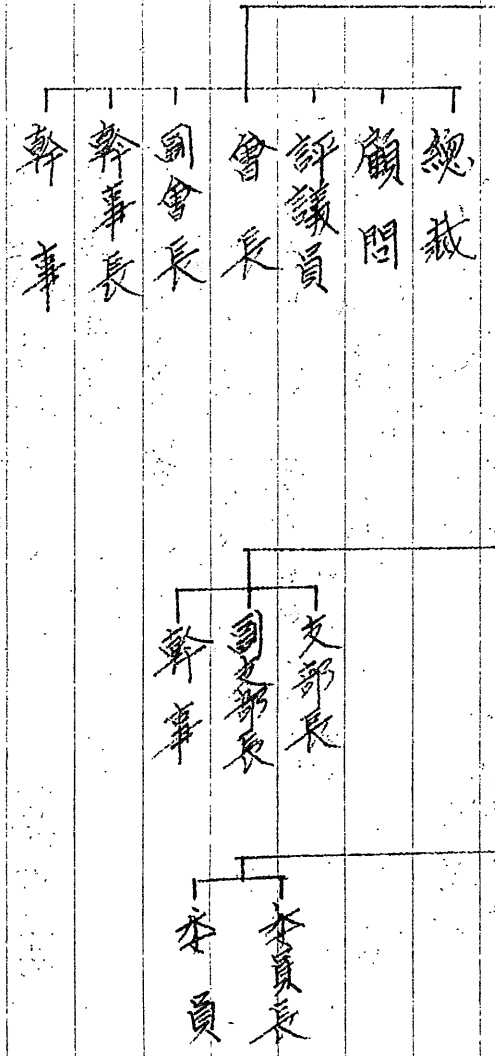 總裁
顧問
評議員
會長
副會長
幹事長
幹事
支部長
副支部長
幹事
委員長
委員